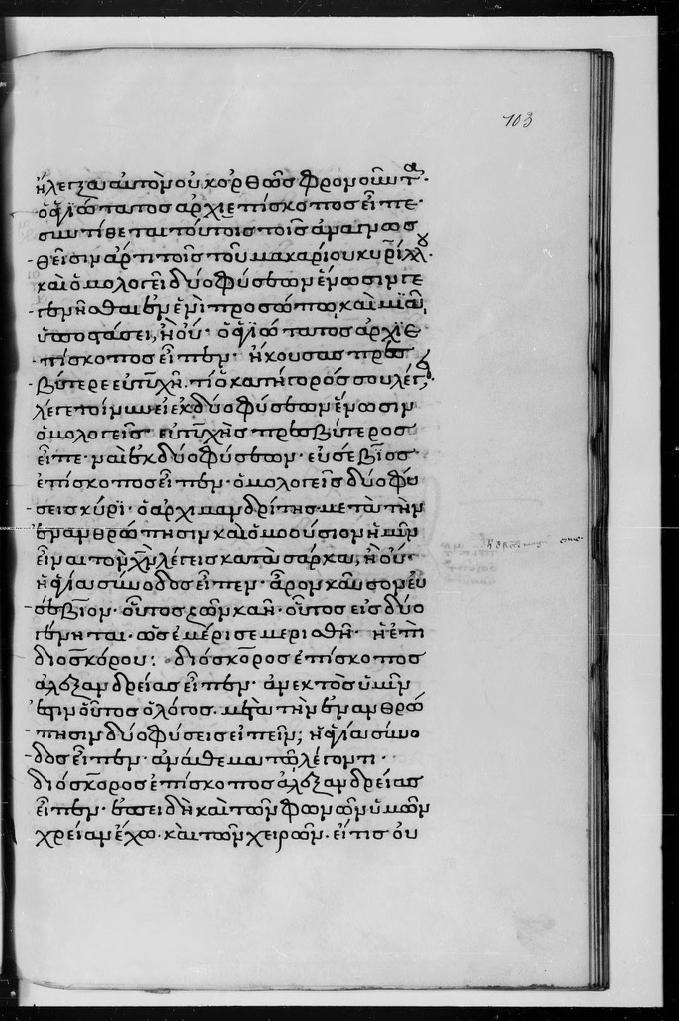 103
ἤλεγξα αὐτὸν οὐκ ὀρθῶς φρονοῦντα·
ὁ ἁγιώτατος ἀρχιεπίσκοπος εἶπε·
συντίθεται τούτοις τοῖς ἀναγνωσ
θεῖσιν ἄρτι τοῖς τοῦ μακαρίου κυρίλλου·
καὶ ὁμολογεῖ δύο φύσεων ἕνωσιν γε
γενῆσθαι ἐν ἑνὶ προσώπω, καὶ μιᾶ
ὑποστάσει, ἢ οὔ· ὁ ἁγιώτατος ἀρχιε
πίσκοπος εἶπεν· ἤκουσας πρεσ
βύτερε εὐτυχῆ. τί ὁ κατήγορός σου λέγει·
λέγε τοίνυν εἰ ἐκ δύο φύσεων ἕνωσιν
ὁμολογεῖς· εὐτυχὴς πρεσβύτερος
εἶπε· ναὶ ἐκ δύο φύσεων· εὐσέβιος
ἐπίσκοπος εἶπεν· ὁμολογεῖς δύο φύ
σεις κύρι· ὁ ἀρχιμανδρίτης· μετὰ τὴν
ἐνανθρώπησιν καὶ ὁμοούσιον ἡμῖν
εἶναι τὸν χν λέγεις κατὰ σάρκα, ἢ οὔ·
ἡ ἁγία σύνοδος εἶπεν· ἆρον καῦσον εὐ
σέβιον· οὗτος ζῶν καῆ· οὗτος εἰς δύο
γένηται· ὡς ἐμέρισε μερισθῆ· ἢ ἐπὶ
διοσκόρου: διόσκορος ἐπίσκοπος
ἀλεξανδρείας εἶπεν· ἀνεκτὸς ὑμῖν
ἐστὶν οὗτος ὁ λόγος. μετὰ τὴν ἐνανθρώ
πησιν δύο φύσεις εἰπεῖν; ἡ ἁγία σύνο
δος εἶπεν· ἀνάθεμα τῶ λέγοντι·
διόσκορος ἐπίσκοπος ἀλεξανδρείας
εἶπεν· ἐπειδὴ καὶ τῶν φωνῶν ὑμῶν
χρείαν ἔχω· καὶ τῶν χειρῶν· εἴ τις οὐ